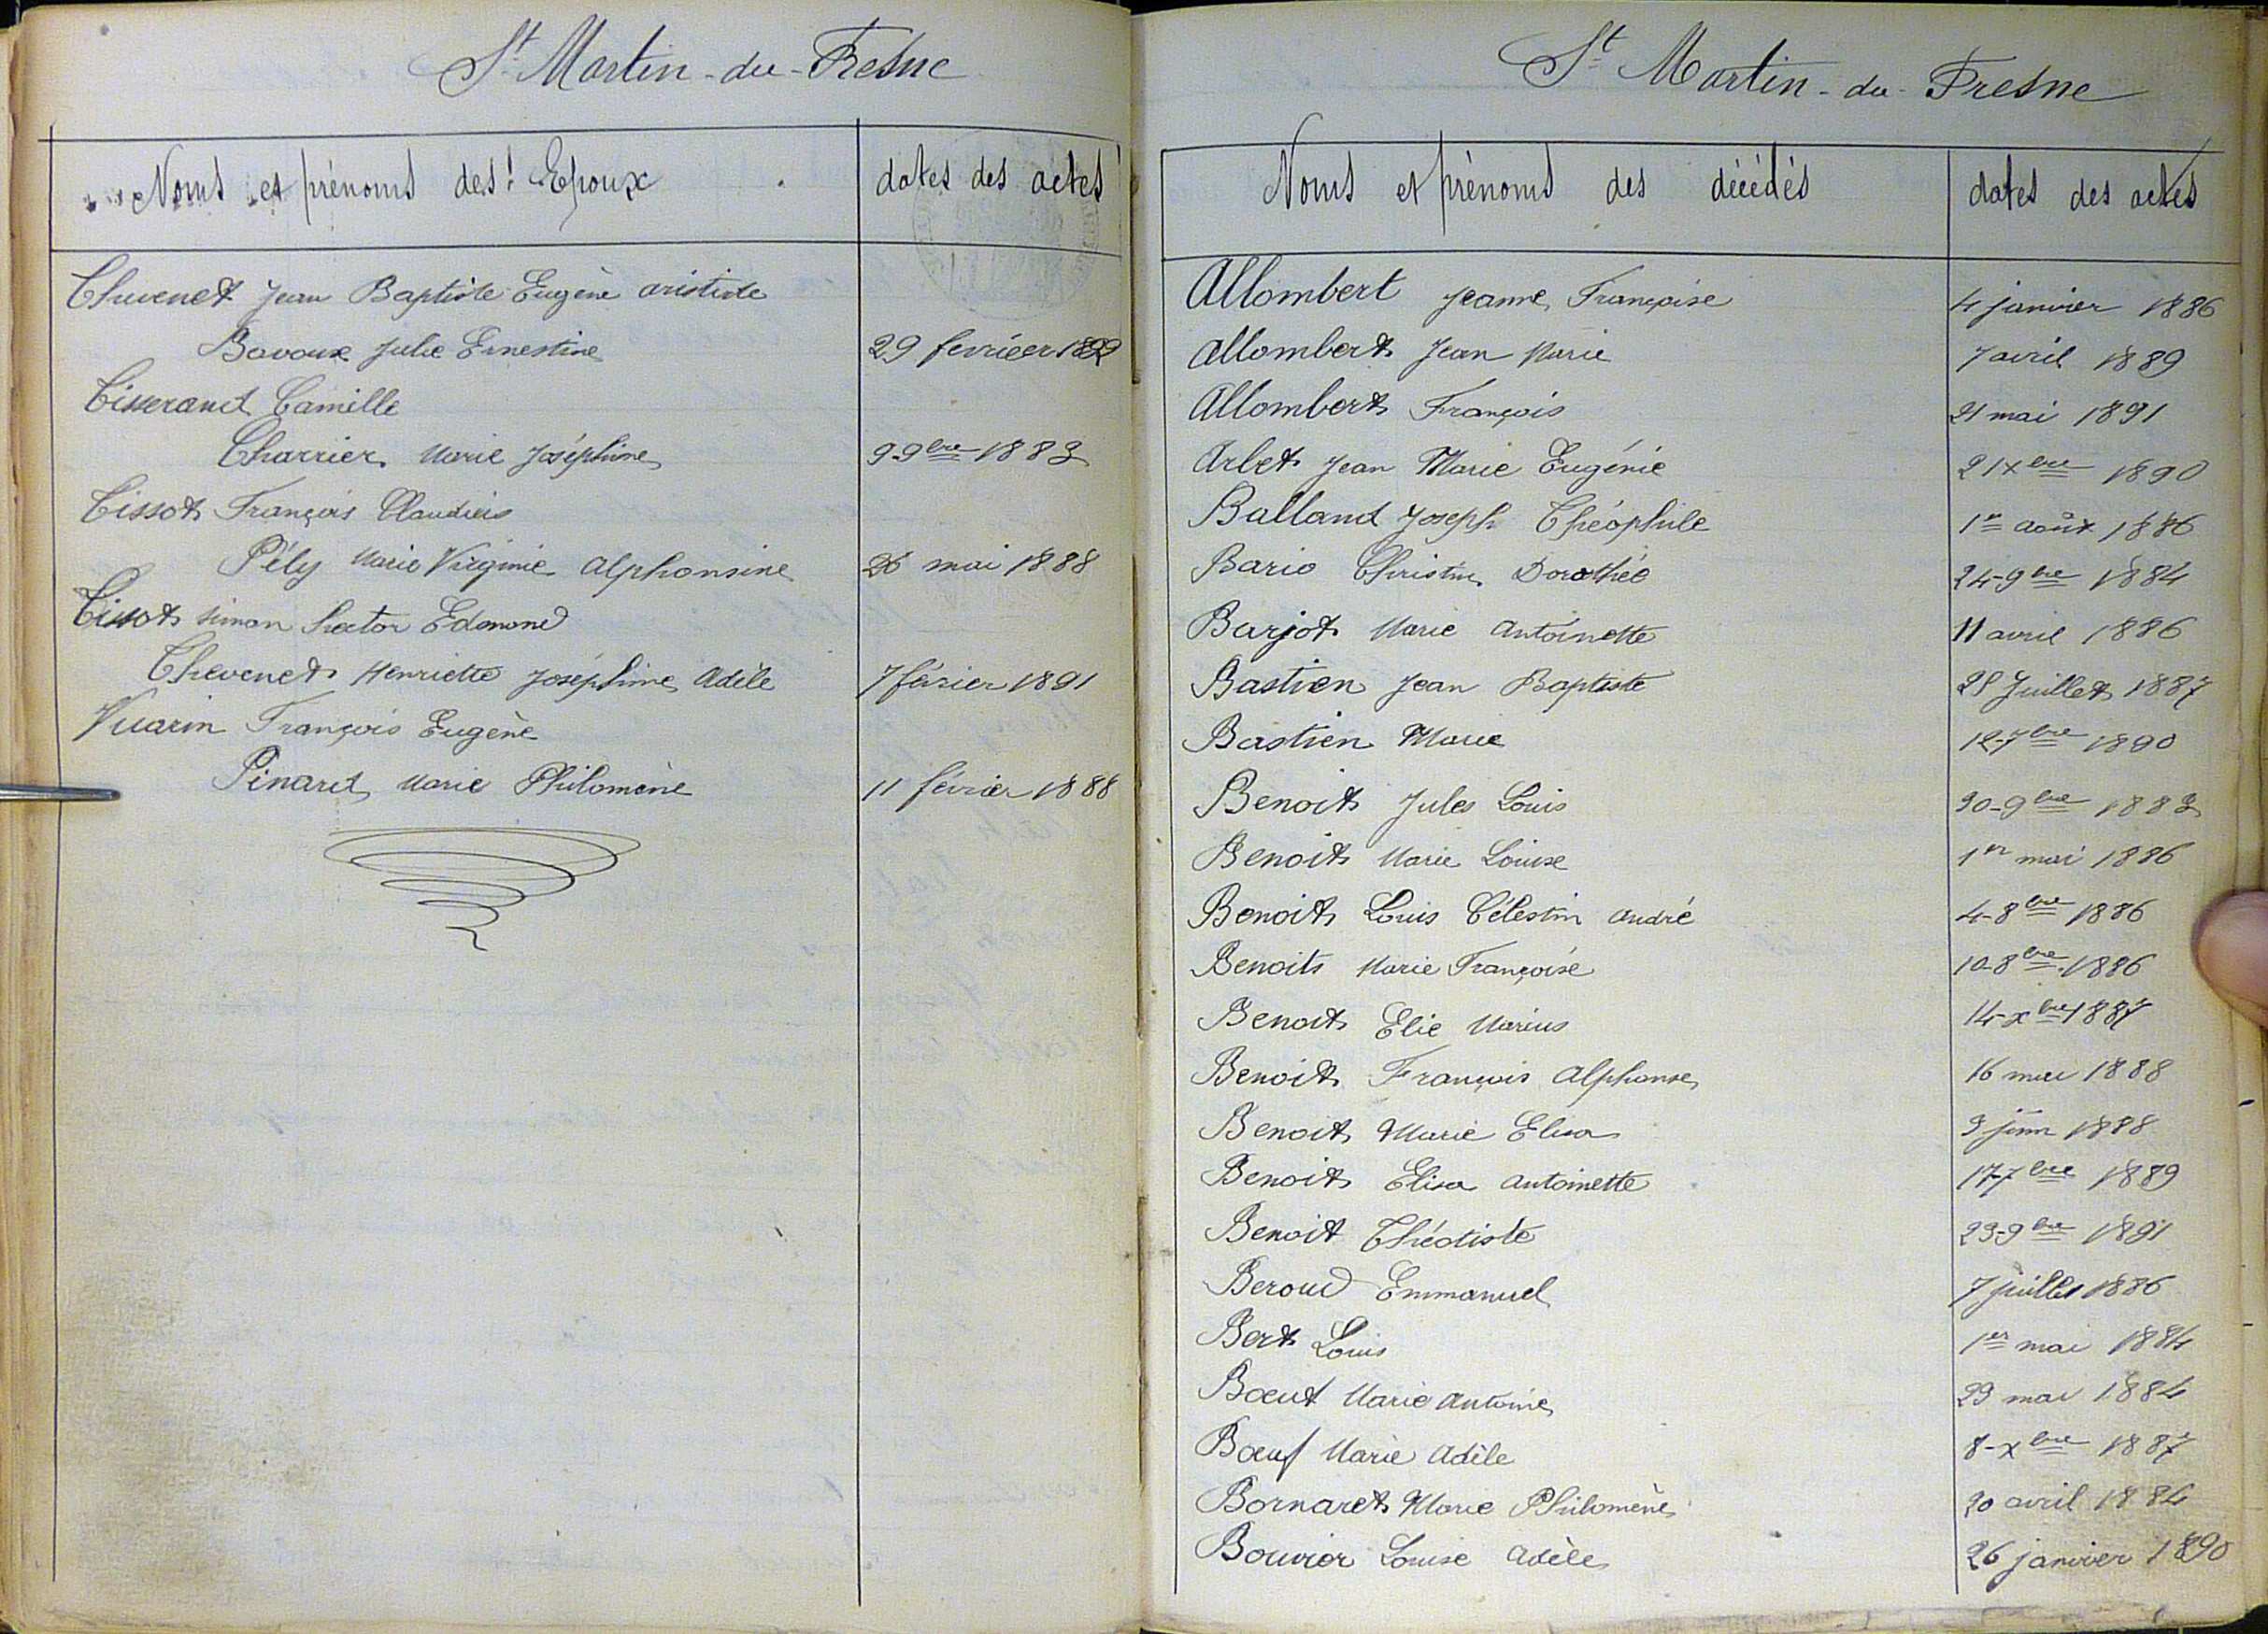 St Martin-du-Fresne
Noms et prénoms des Epoux dates des actes
Chevenet Jean Baptiste Eugène aristide
Bavoux Julie Ernestine 29 février
Tisserand Camille
Charrier Marie Joséphine 9-9bre 1883
Tissot François Claudius
Pély Marie Virginie Alphonsine 26 mai 1888
Tissot Simon hector Edmond
Chevenet Henriette Joséphine Adèle 7 février 1891
Vuarin François Eugène
Pinard Marie Philomène 11 février 1888
St Martin-du-Fresne
Noms et prénoms des décédés dates des actes
Allombert Jeanne Françoise 4 janvier 1886
Allombert Jean Marie 7 avril 1889
Allombert François 21 mai 1891
Arbet Jean Marie Eugénie 21 xbre 1890
Balland Joseph Théophile 1er août 1886
Bario Christine Dorothée 24-9bre 1884
Barjot Marie Antoinette 11 avril 1886
Bastien Jean Baptiste 28 Juillet 1887
Bastien Marie 12-7bre 1890
Benoit Jules Louis 30-9bre 1883
Benoit Marie Louise 1er mai 1886
Benoit Louis Célestin André 4-8bre 1886
Benoit Marie Françoise 10-8bre 1886
Benoit Elie Marius 14-xbre 1887
Benoit François Alphonse 16 mai 1888
Benoit Marie Elisa 3 juin 1888
Benoit Elisa Antoinette 17-7bre 1889
Benoit Théotiste 23-9bre 1891
Beroud Emmanuel 7 juillet 1886
Bert Louis 1er mai 1884
Boeuf Marie Antoine 23 mai 1884
Boeuf Marie Adèle 8-xbre 1887
Bornaret Marie Philomène 20 avril 1884
Bouvier Louise Adèle 26 janvier 1890